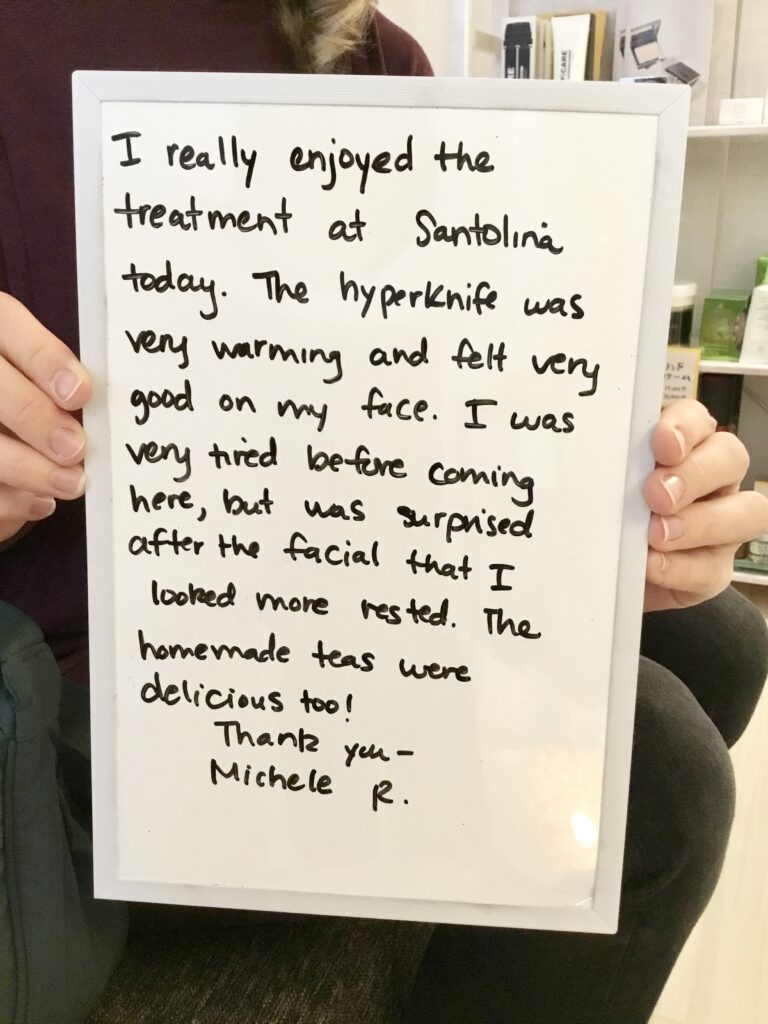 I really enjoyed the
treatment at Santolina
today. The hyperknife was
very warming and felt very
good on my face. I was
very tired before coming
here, but was surprised
after the facial that I
looked more rested. The
homemade teas were
delicious too!
Thank you-
Michele R.